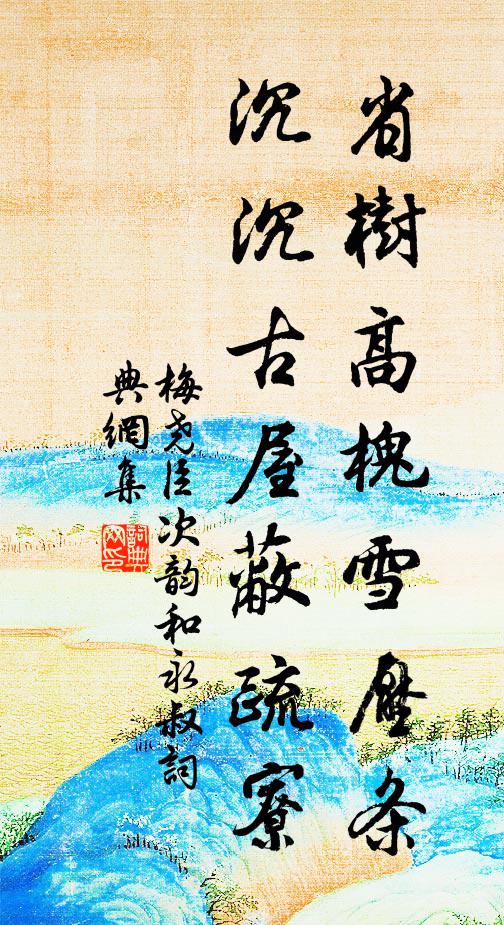 省樹高槐雪壓条
沉沉古屋蔽疏寮
梅尧臣次韵和永叔詞
典網集